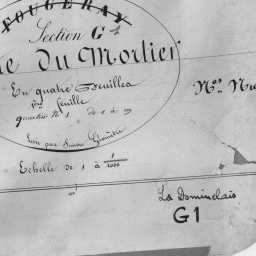 FOUGERAY
Section G4
e Du Mortier
En quatre feuilles
feuille
Nos Nu
Echelle de 1 à 1/1000
La Dominelais
G1